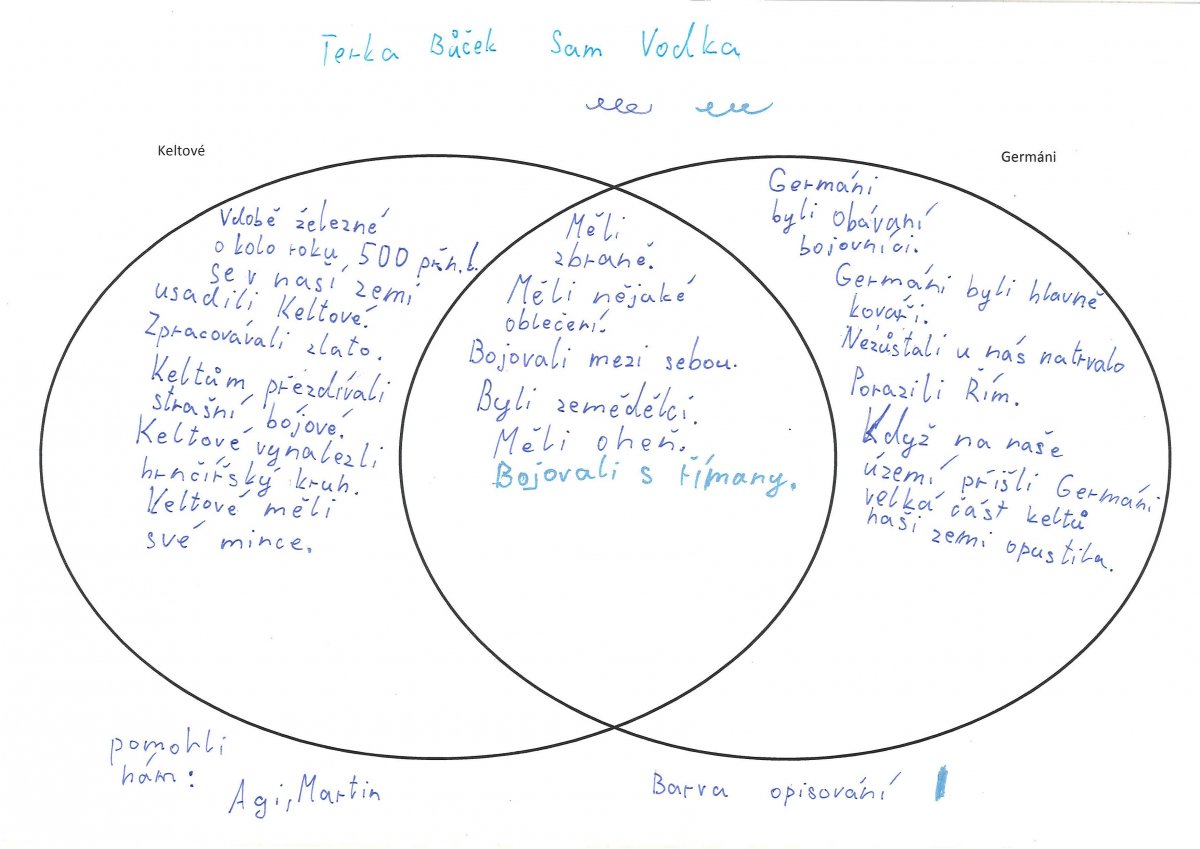 Terka Bůček Sam Vodka
Keltové
Germáni
Vdobě železné
okolo roku 500 př.n.l.
se v naší zemi
usadili Keltové.
Zpracovávali zlato.
Keltům přezdívali
strašní bójové.
Keltové vynalezli
hrnčířský kruh.
Keltové měli
své mince.
Měli
zbraně.
Měli nějaké
oblečení.
Bojovali mezi sebou.
Byli zemědělci.
Měli oheň.
Bojovali s římany.
Germáni
byli obávaní
bojovníci.
Germáni byli hlavně
kováři.
Nezůstali u nás natrvalo
Porazili Řím.
Když na naše
území přišli Germáni
velká část keltů
naši zemi opustila.
pomohli
nám:
Agi, Martin
Barva opisování